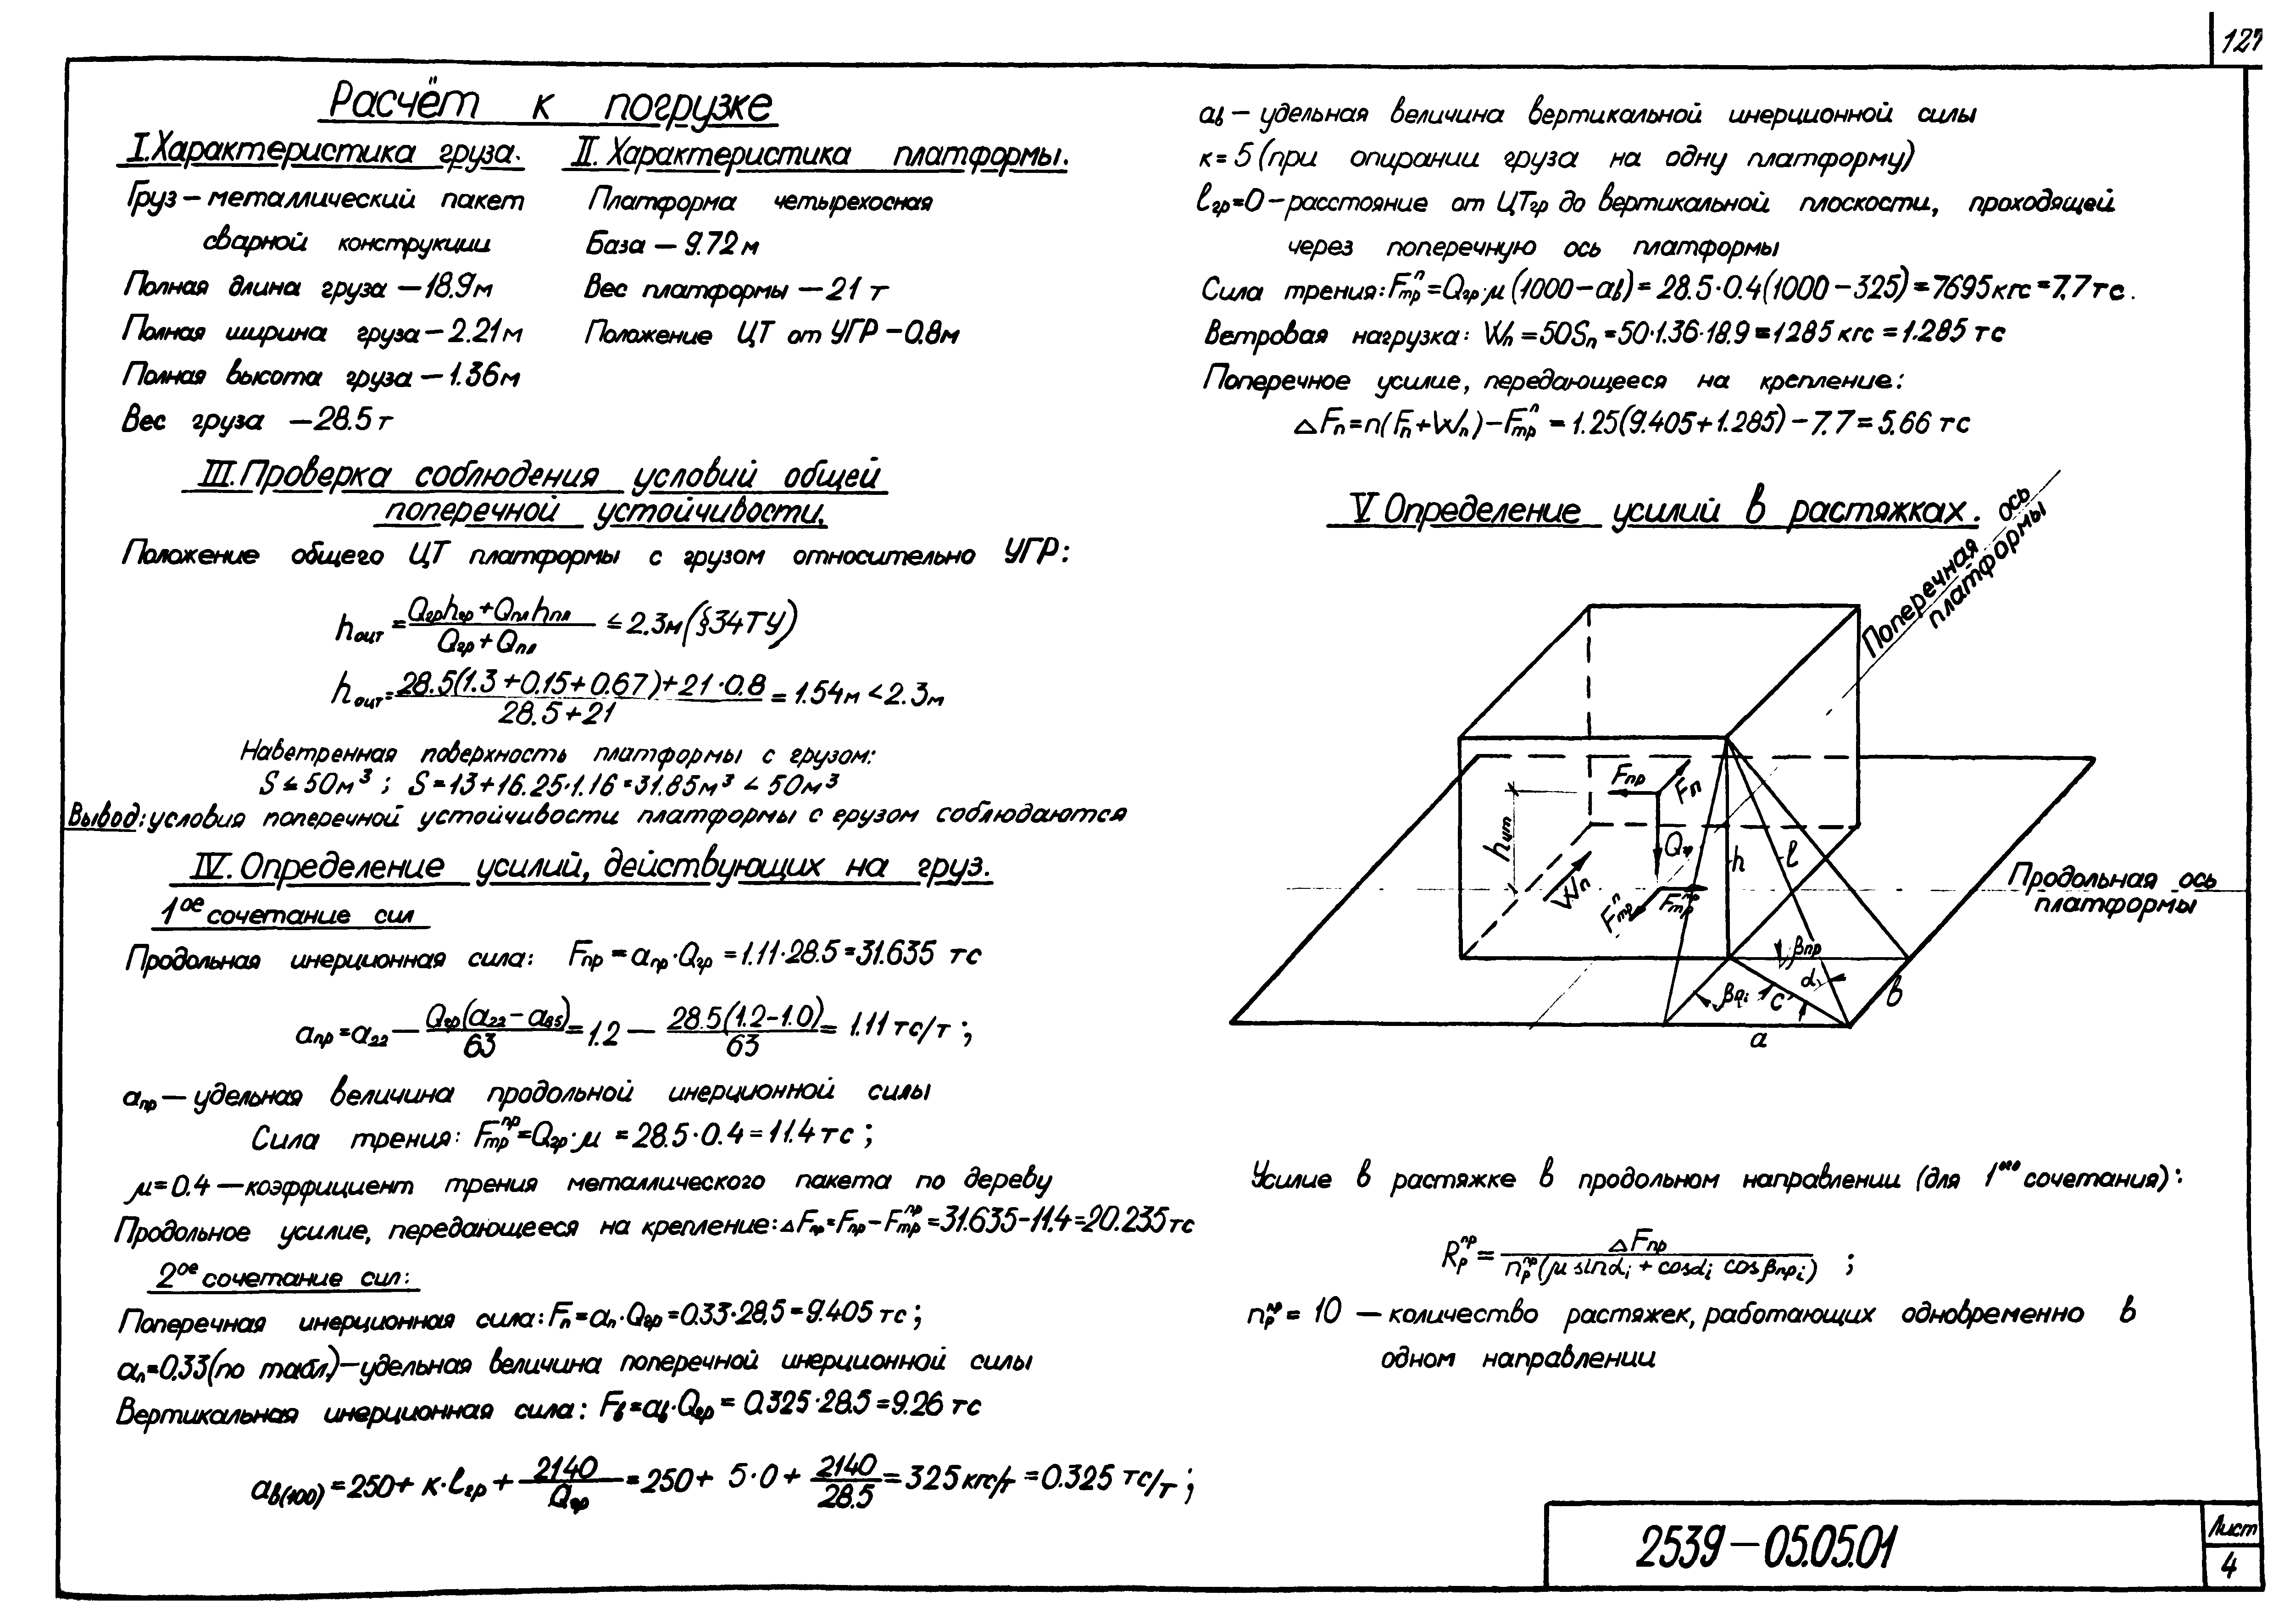 127
Расчёт к погрузке
I. Характеристика груза.
Груз – металлический пакет
сварной конструкции
Полная длина груза – 18.9 м
Полная ширина груза – 2.21 м
Полная высота груза – 1.36 м
Вес груза – 28.5 т
II. Характеристика платформы.
Платформа четырехосная
База – 9.72 м
Вес платформы – 21 т
Положение ЦТ от УГР – 0.8 м
III. Проверка соблюдения условий общей
поперечной устойчивости.
Положение общего ЦТ платформы с грузом относительно УГР:
hоцт = (Qгр hгр + Qпл hпл) / (Qгр + Qпл) ≤ 2.3 м (§34 ТУ)
hоцт = (28.5(1.3 + 0.15 + 0.67) + 21 · 0.8) / (28.5 + 21) = 1.54 м < 2.3 м
Наветренная поверхность платформы с грузом:
S ≤ 50 м³ ; S = 13 + 16.25 · 1.16 = 31.85 м³ < 50 м³
Вывод: условия поперечной устойчивости платформы с грузом соблюдаются
IV. Определение усилий, действующих на груз.
1ое сочетание сил
Продольная инерционная сила: Fпр = aпр · Qгр = 1.11 · 28.5 = 31.635 тс
aпр = a22 – Qгр(a22 – a85) / 63 = 1.2 – 28.5(1.2 – 1.0) / 63 = 1.11 тс/т ;
aпр – удельная величина продольной инерционной силы
Сила трения: Fтрпр = Qгр · μ = 28.5 · 0.4 = 11.4 тс ;
μ = 0.4 – коэффициент трения металлического пакета по дереву
Продольное усилие, передающееся на крепление: ΔFпр = Fпр – Fтрпр = 31.635 – 11.4 = 20.235 тс
2ое сочетание сил:
Поперечная инерционная сила: Fп = aп · Qгр = 0.33 · 28.5 = 9.405 тс ;
aп = 0.33 (по табл.) – удельная величина поперечной инерционной силы
Вертикальная инерционная сила: Fв = aв · Qгр = 0.325 · 28.5 = 9.26 тс
aв(100) = 250 + к · lгр + 2140 / Qгр = 250 + 5 · 0 + 2140 / 28.5 = 325 кгс/т = 0.325 тс/т ;
aв – удельная величина вертикальной инерционной силы
к = 5 (при опирании груза на одну платформу)
lгр = 0 – расстояние от ЦТгр до вертикальной плоскости, проходящей
через поперечную ось платформы
Сила трения: Fтрп = Qгр · μ (1000 – aв) = 28.5 · 0.4 (1000 – 325) = 7695 кгс = 7.7 тс.
Ветровая нагрузка: Wп = 50Sп = 50 · 1.36 · 18.9 = 1285 кгс = 1.285 тс
Поперечное усилие, передающееся на крепление:
ΔFп = n(Fп + Wп) – Fтрп = 1.25(9.405 + 1.285) – 7.7 = 5.66 тс
V. Определение усилий в растяжках.
Поперечная ось
платформы
Fпр
Fп
hцт
Qгр
h
l
Wп
Fтрп
Fтрпр
Продольная ось
платформы
βпр
αi
βпi
c
в
a
Усилие в растяжке в продольном направлении (для 1ого сочетания):
Rрпр = ΔFпр / nрпр(μ sinαi + cosαi cosβпрi) ;
nрпр = 10 – количество растяжек, работающих одновременно в
одном направлении
2539 – 05.05.01
Лист
4